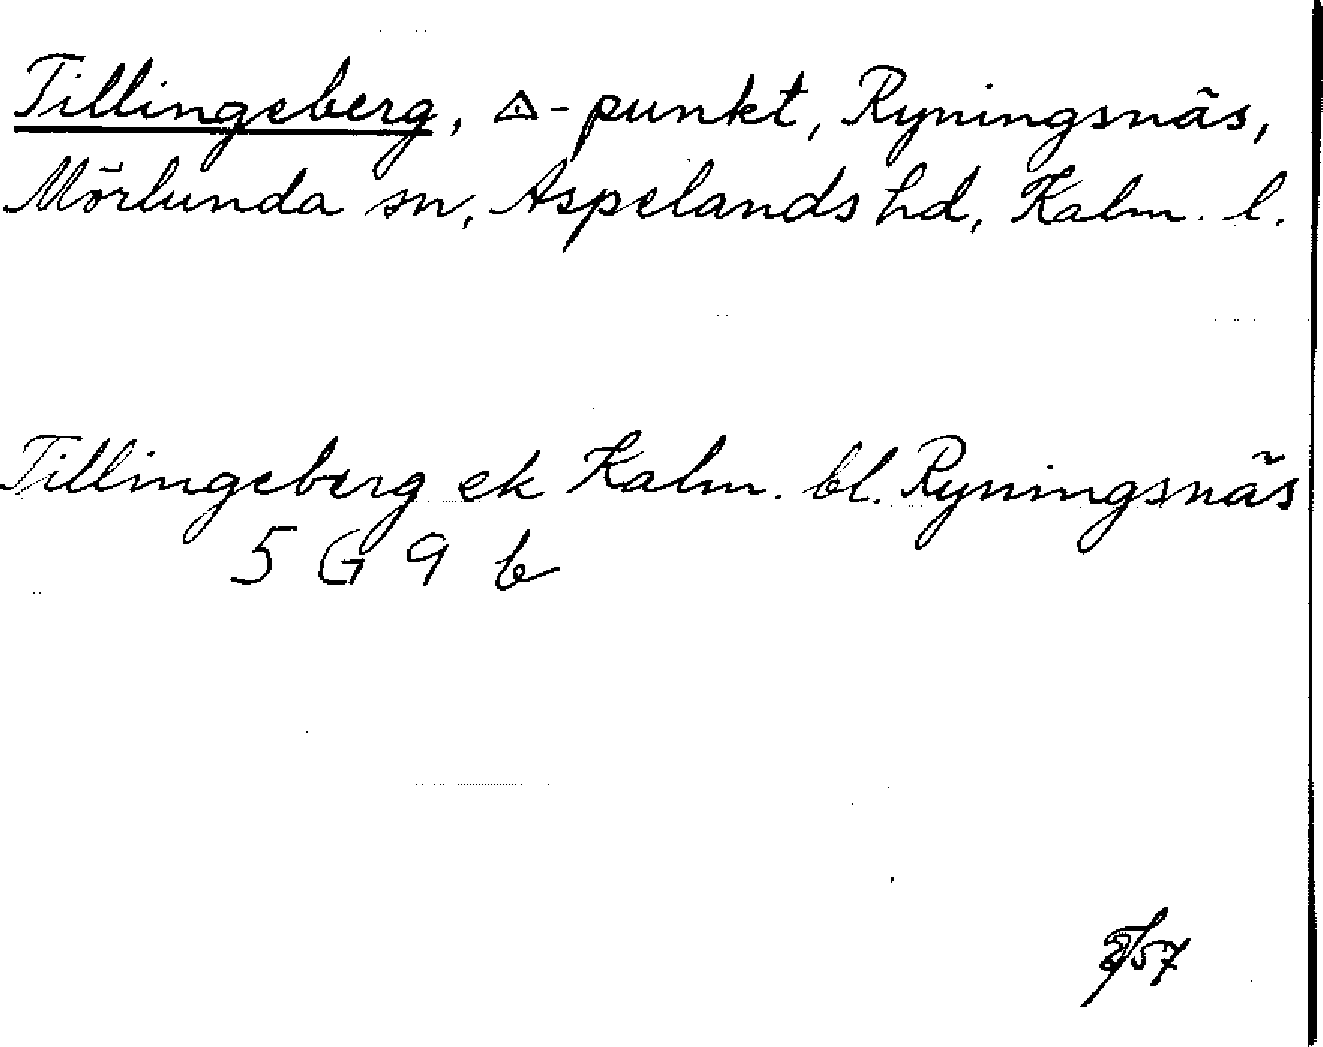 Tillingeberg, △-punkt, Ryningsnäs,
Mörlunda sn, Aspelands hd, Kalm. l.
Tillingeberg ek Kalm. bl. Ryningsnäs
5 G 9 b
/57